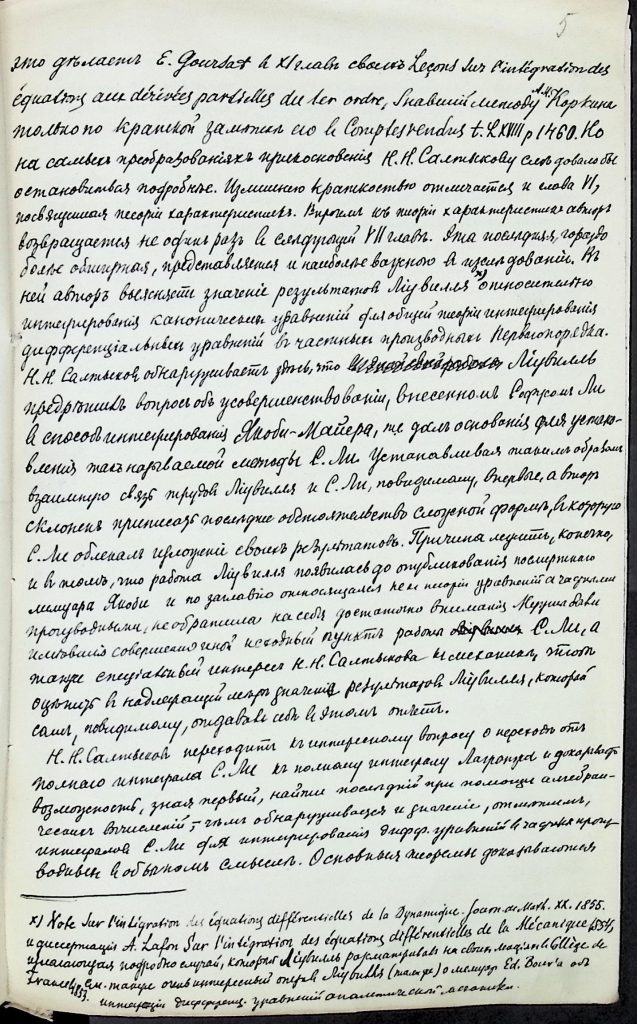 5
это дѣлаетъ E. Goursat въ XI главѣ своихъ Leçons sur l'intégration des
équations aux dérivées partielles du 1er ordre, знавшій методу А.Н. Коркина
только по краткой замѣткѣ его въ Comptes rendus t. LXVIII p 1460. Но
на самыхъ преобразованіяхъ прикосновенія Н.Н. Салтыкову слѣдовало бы
остановиться подробнѣе. Излишнею краткостью отличается и глава VI,
посвященная теоріи характеристикъ. Впрочемъ къ теоріи характеристикъ авторъ
возвращается не одинъ разъ въ слѣдующей VII главѣ. Эта послѣдняя, гораздо
болѣе обширная, представляется и наиболѣе важною въ изслѣдованіи. Въ
ней авторъ выясняетъ значеніе результатовъ Ліувилля x) относительно
интегрированія каноническихъ уравненій для общей теоріи интегрированія
дифференціальныхъ уравненій въ частныхъ производныхъ перваго порядка.
Н.Н. Салтыковъ обнаруживаетъ здѣсь, что Ліувилль
предрѣшилъ вопросъ объ усовершенствованіи, внесенномъ Софусомъ Ли
въ способъ интегрированія Якоби-Майера, т.е. далъ основанія для устано-
вленія такъ называемой методы С. Ли. Устанавливая такимъ образомъ
взаимную связь трудовъ Ліувилля и С. Ли, повидимому, впервые, авторъ
склоненъ приписать послѣднее обстоятельство сложной формѣ, въ которую
С. Ли облекалъ изложеніе своихъ результатовъ. Причина лежитъ, конечно,
и въ томъ, что работа Ліувилля появилась до опубликованія посмертнаго
мемуара Якоби и по заглавію относящаяся не къ теоріи уравненій въ частными
производными, не обратила на себя достаточно вниманія
совершенно иной исходный пунктъ работы С. Ли, а
также спеціальный интересъ Н.Н. Салтыкова къ механикѣ, чтобы
оцѣнить въ надлежащей мѣрѣ значеніе результатовъ Ліувилля, который
самъ, повидимому, отдавалъ себѣ въ этомъ отчетъ.
Н.Н. Салтыковъ переходитъ къ интересному вопросу о переходѣ отъ
полнаго интеграла С. Ли къ полному интегралу Лагранжа и доказываетъ
возможность, зная первый, найти послѣдній при помощи алгебраи-
ческихъ вычисленій, – чѣмъ обнаруживается и значеніе,
интеграловъ С. Ли для интегрированія дифф. уравненій въ частныхъ произ-
водныхъ въ обычномъ смыслѣ. Основныя теоремы доказываются
x) Note sur l'intégration des équations différentielles de la Dynamique. Journ. de Math. XX. 1855.
и диссертація A. Lafon Sur l'intégration des équations différentielles de la Mécanique 1854,
излагающая подробно случай, который Ліувилль разсматривалъ на своихъ лекціяхъ въ Collège de
France въ 1853. См. также очень интересный отзывъ Ліувилля (тамъ же) о мемуарѣ Ed. Bour'а объ
интеграціи дифференц. уравненій аналитической механики.